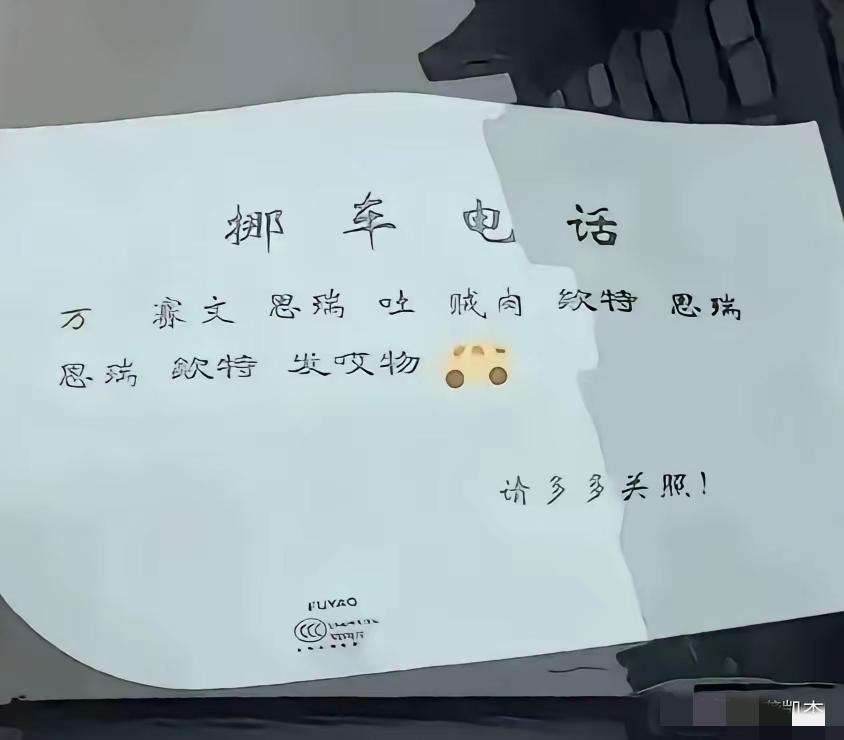 挪车电话
万 赛文 思瑞 吐 贼肉 欸特 思瑞
思瑞 欸特 发哎物
请多多关照！
FUYAO
CCC
凯杰